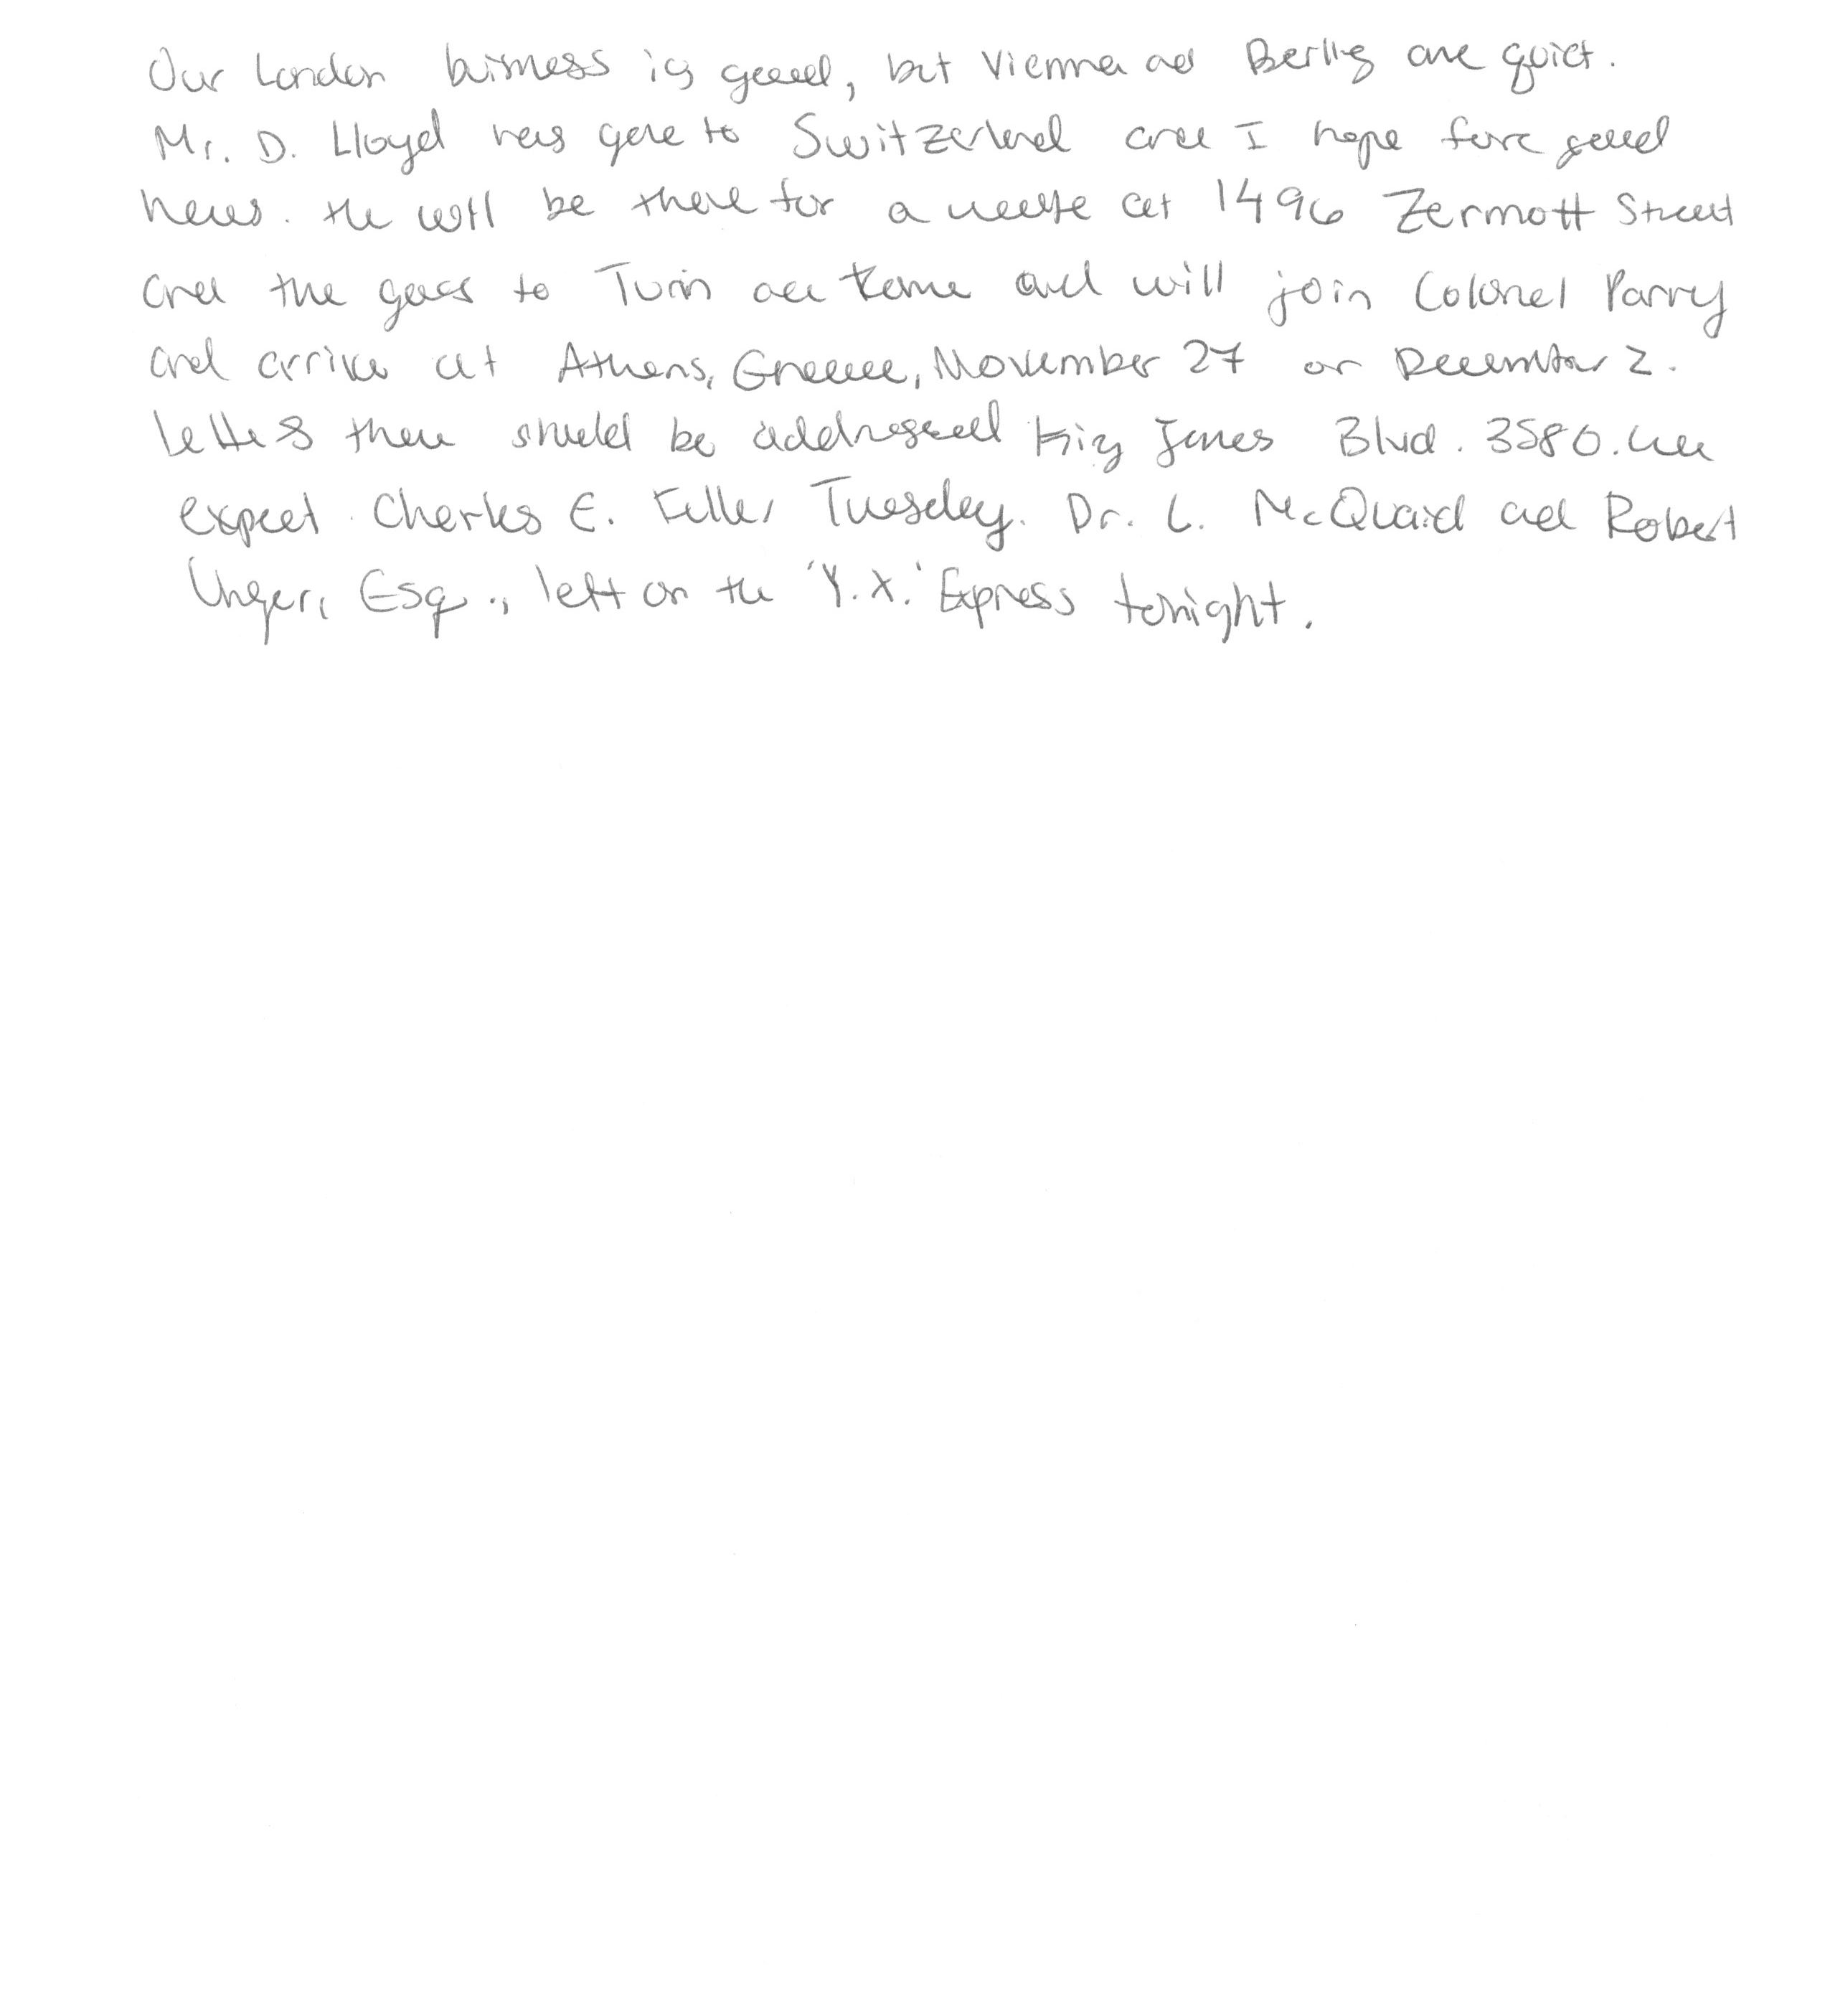 Our London business is good, but Vienna and Berlin are quiet.
Mr. D. Lloyd has gone to Switzerland and I hope for good
news. He will be there for a week at 1496 Zermott Street
and the goes to Turin and Rome and will join Colonel Parry
and arrive at Athens, Greece, November 27 or December 2.
Letters there should be addressed King James Blvd. 3580. We
expect Charles E. Fuller Tuesday. Dr. L. McQuaid and Robert
Unger, Esq., left on the 'Y.X.' Express tonight.